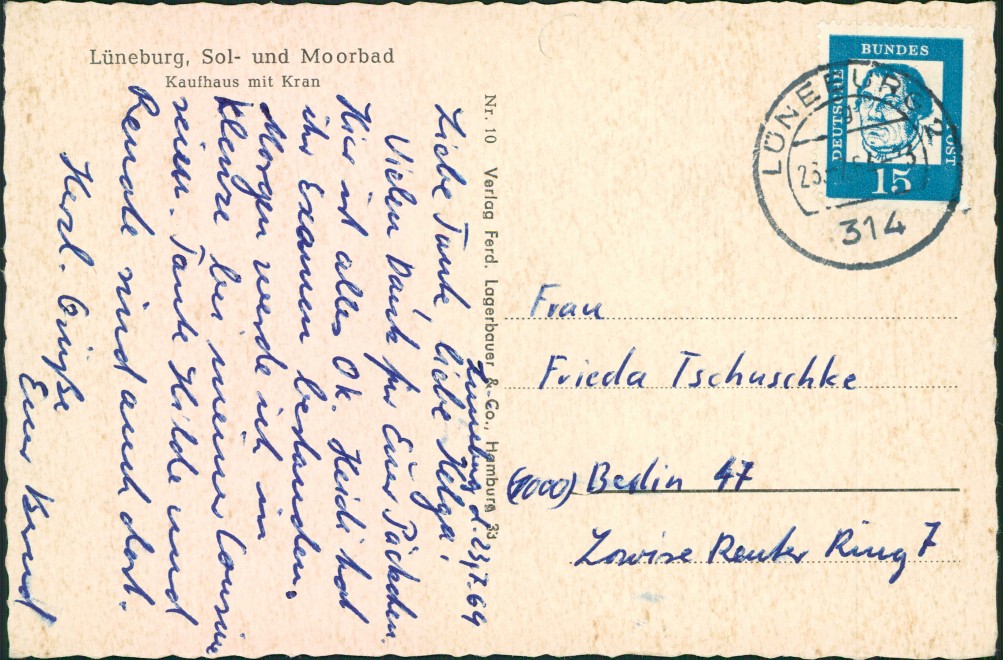 Lüneburg, Sol- und Moorbad
Kaufhaus mit Kran
Lüneburg d. 23.7.64
Liebe Tante, liebe Helga!
Vielen Dank für Euer Päckchen.
Hier ist alles Ok. Heidi hat
ihr Examen bestanden.
Morgen werde ich in
Klenze bei meiner Cousine
sein. Tante Hilde und
Renate sind auch dort.
Herzl. Grüße
Euer Bernd
Nr. 10 Verlag Ferd. Lagerbauer & Co., Hamburg 33
DEUTSCHE
BUNDES
POST
15
LÜNEBURG 2
314
Frau
Frieda Tschuschke
(1000) Berlin 47
Lowise Reuter Ring 7